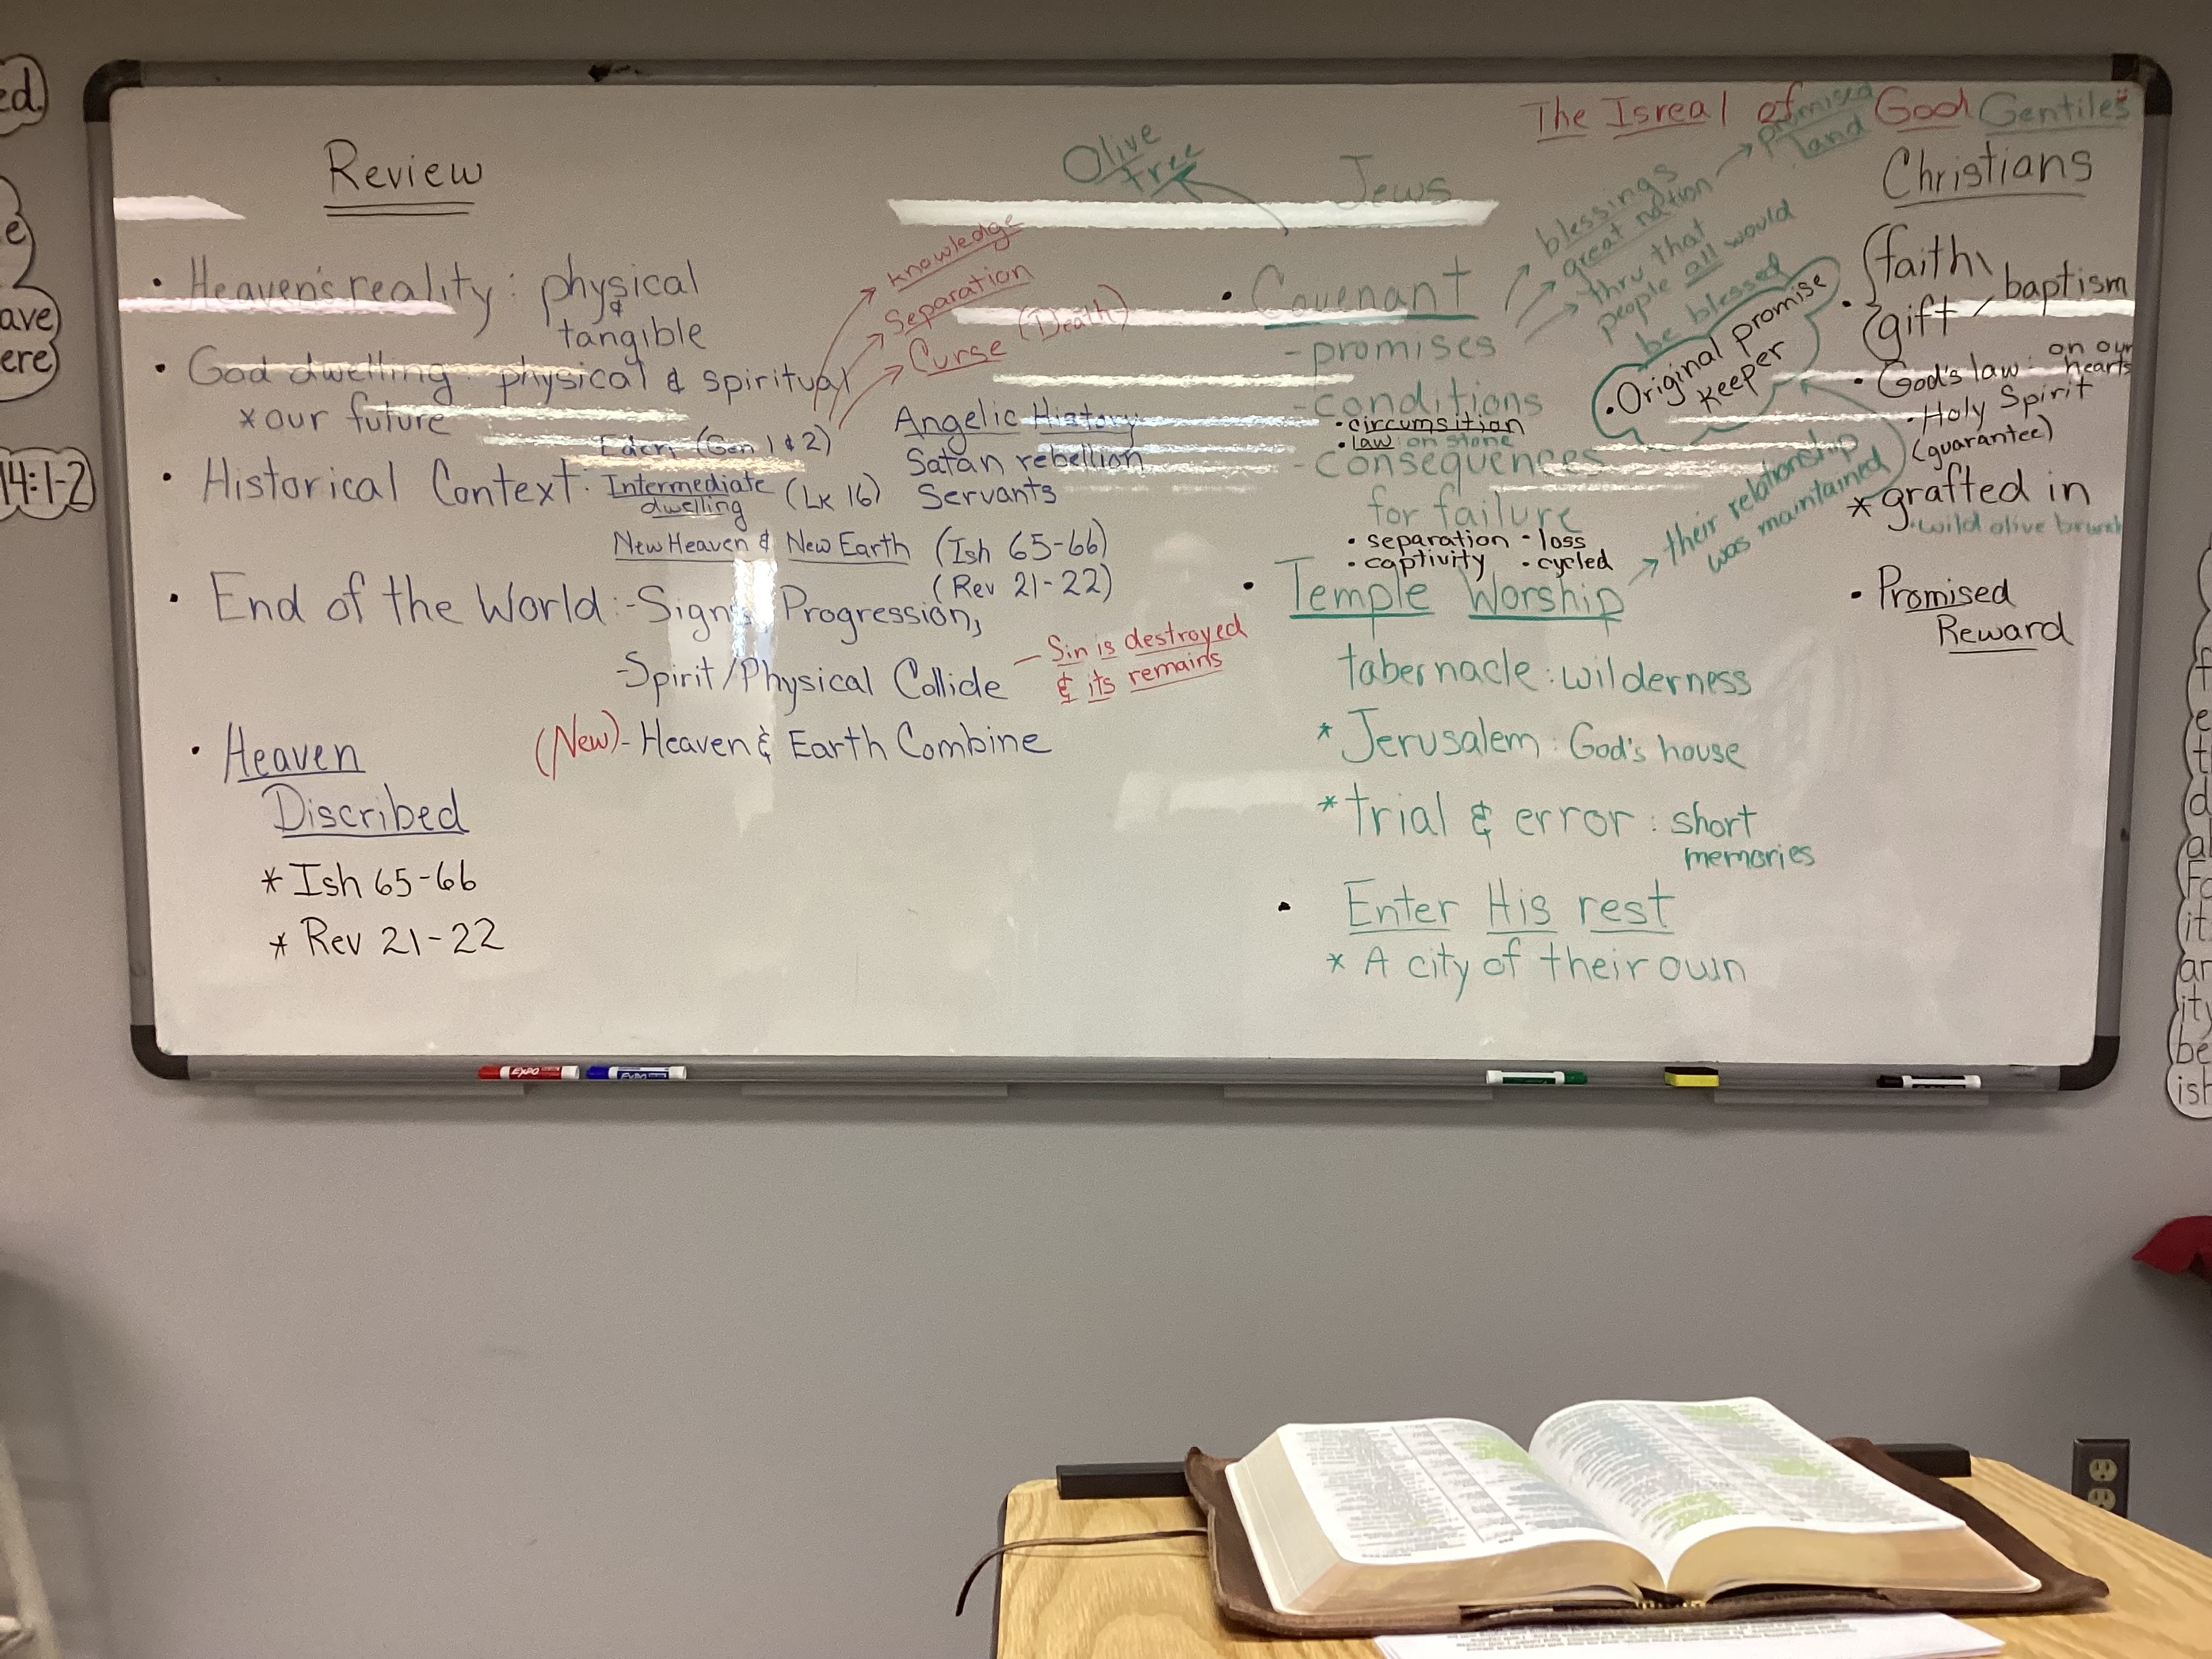 Review
• Heaven's reality: physical
&
tangible
• God dwelling: physical & spiritual
* our future
knowledge
Separation
Curse (Death)
• Historical Context: Eden (Gen 1 & 2)
Intermediate dwelling (Lk 16)
New Heaven & New Earth (Ish 65-66)
(Rev 21-22)
Angelic History
Satan rebellion
Servants
• End of the World: -Signs, Progression,
-Spirit/Physical Collide
— Sin is destroyed
& its remains
(New) - Heaven & Earth Combine
• Heaven
Discribed
* Ish 65-66
* Rev 21-22
The Isreal of God
Olive
tree
Jews
• Covenant
- promises
blessings
great nation
promised
land
thru that
people all would
be blessed
- conditions
• circumsition
• law: on stone
- consequences
for failure
• separation • loss
• captivity • cycled
• Original promise
keeper
• Temple Worship
their relationship
was maintained
tabernacle: wilderness
* Jerusalem: God's house
* trial & error: short
memories
• Enter His rest
* A city of their own
Gentiles
Christians
• faith
gift
baptism
• God's law: on our
hearts
• Holy Spirit
(guarantee)
* grafted in
• wild olive branch
• Promised
Reward
EXPO
EXPO
ed.
e
ave
ere
14:1-2